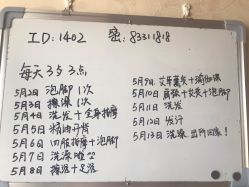 ID:1402 密:83311818
每天3与3点
5月2日 泡脚 1次
5月3日 擦澡 1次
5月4日 洗发+全身按摩
5月5日 精油开背
5月6日 四肢按摩+泡脚
5月7日 洗澡
5月8日 擦浴+足浴
5月9日 艾草薰灸+
5月10日 +艾灸+泡脚
5月11日 洗发
5月12日 发汗
5月13日 洗澡 出所回家!